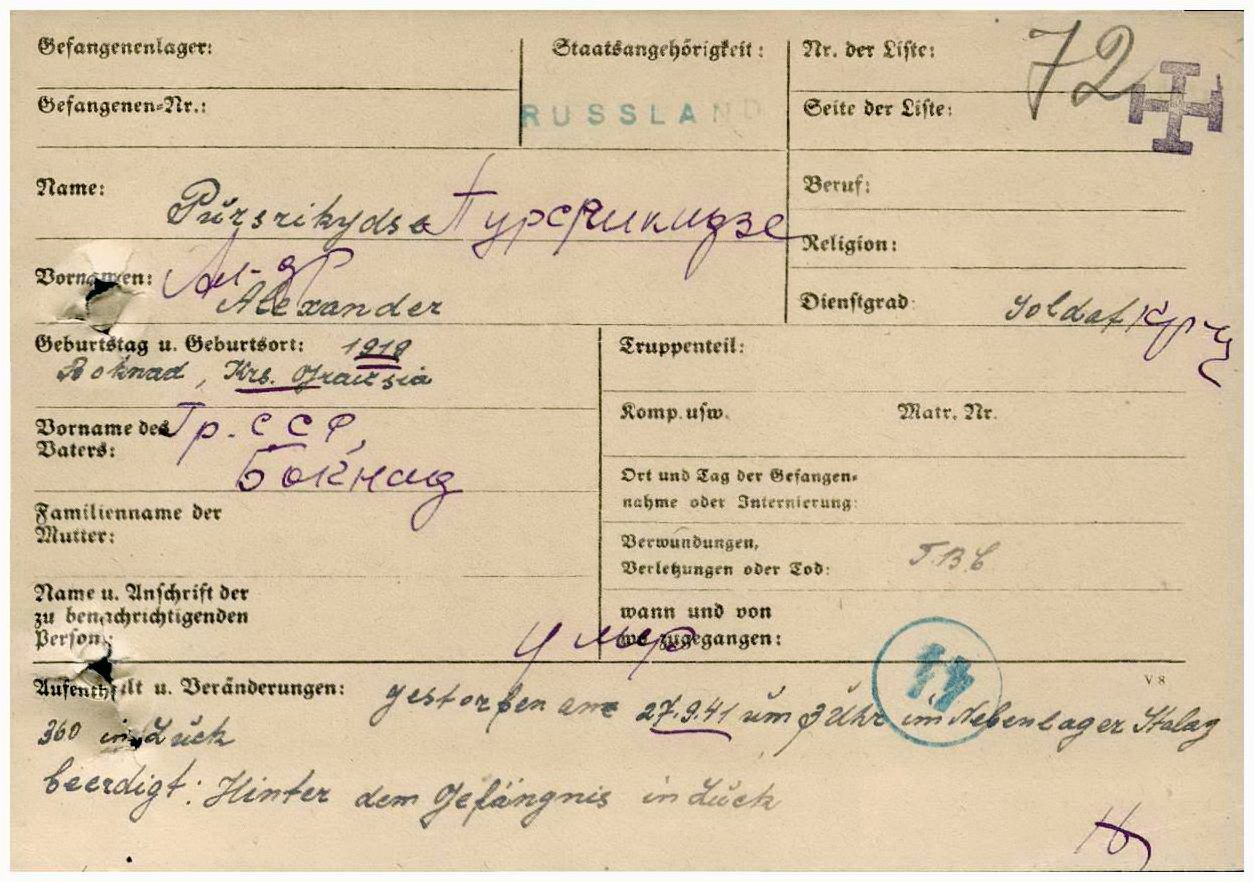 Gefangenenlager:
Staatsangehörigkeit:
Nr. der Liste:
72
Gefangenen-Nr.:
RUSSLAND
Seite der Liste:
Name: Pŭrsrikydse Пурсрикидзе
Beruf:
Religion:
Vornamen: Ал-др
Alexander
Dienstgrad: Soldat
Geburtstag u. Geburtsort: 1919
Boknad, Krs. Grausia
Truppenteil:
Vorname des Vaters:
Гр. ССР,
Бокнад
Komp. usw.
Matr. Nr.
Ort und Tag der Gefangen-
nahme oder Internierung:
Familienname der
Mutter:
Verwundungen,
Verletzungen oder Tod: T.B.C
Name u. Anschrift der
zu benachrichtigenden
Person:
wann und von
wo zugegangen:
умер
V 8
Aufenthalt u. Veränderungen: gestorben am 27.9.41 um 3 Uhr im Nebenlager Stalag
360 in Luck
beerdigt: Hinter dem Gefängnis in Luck